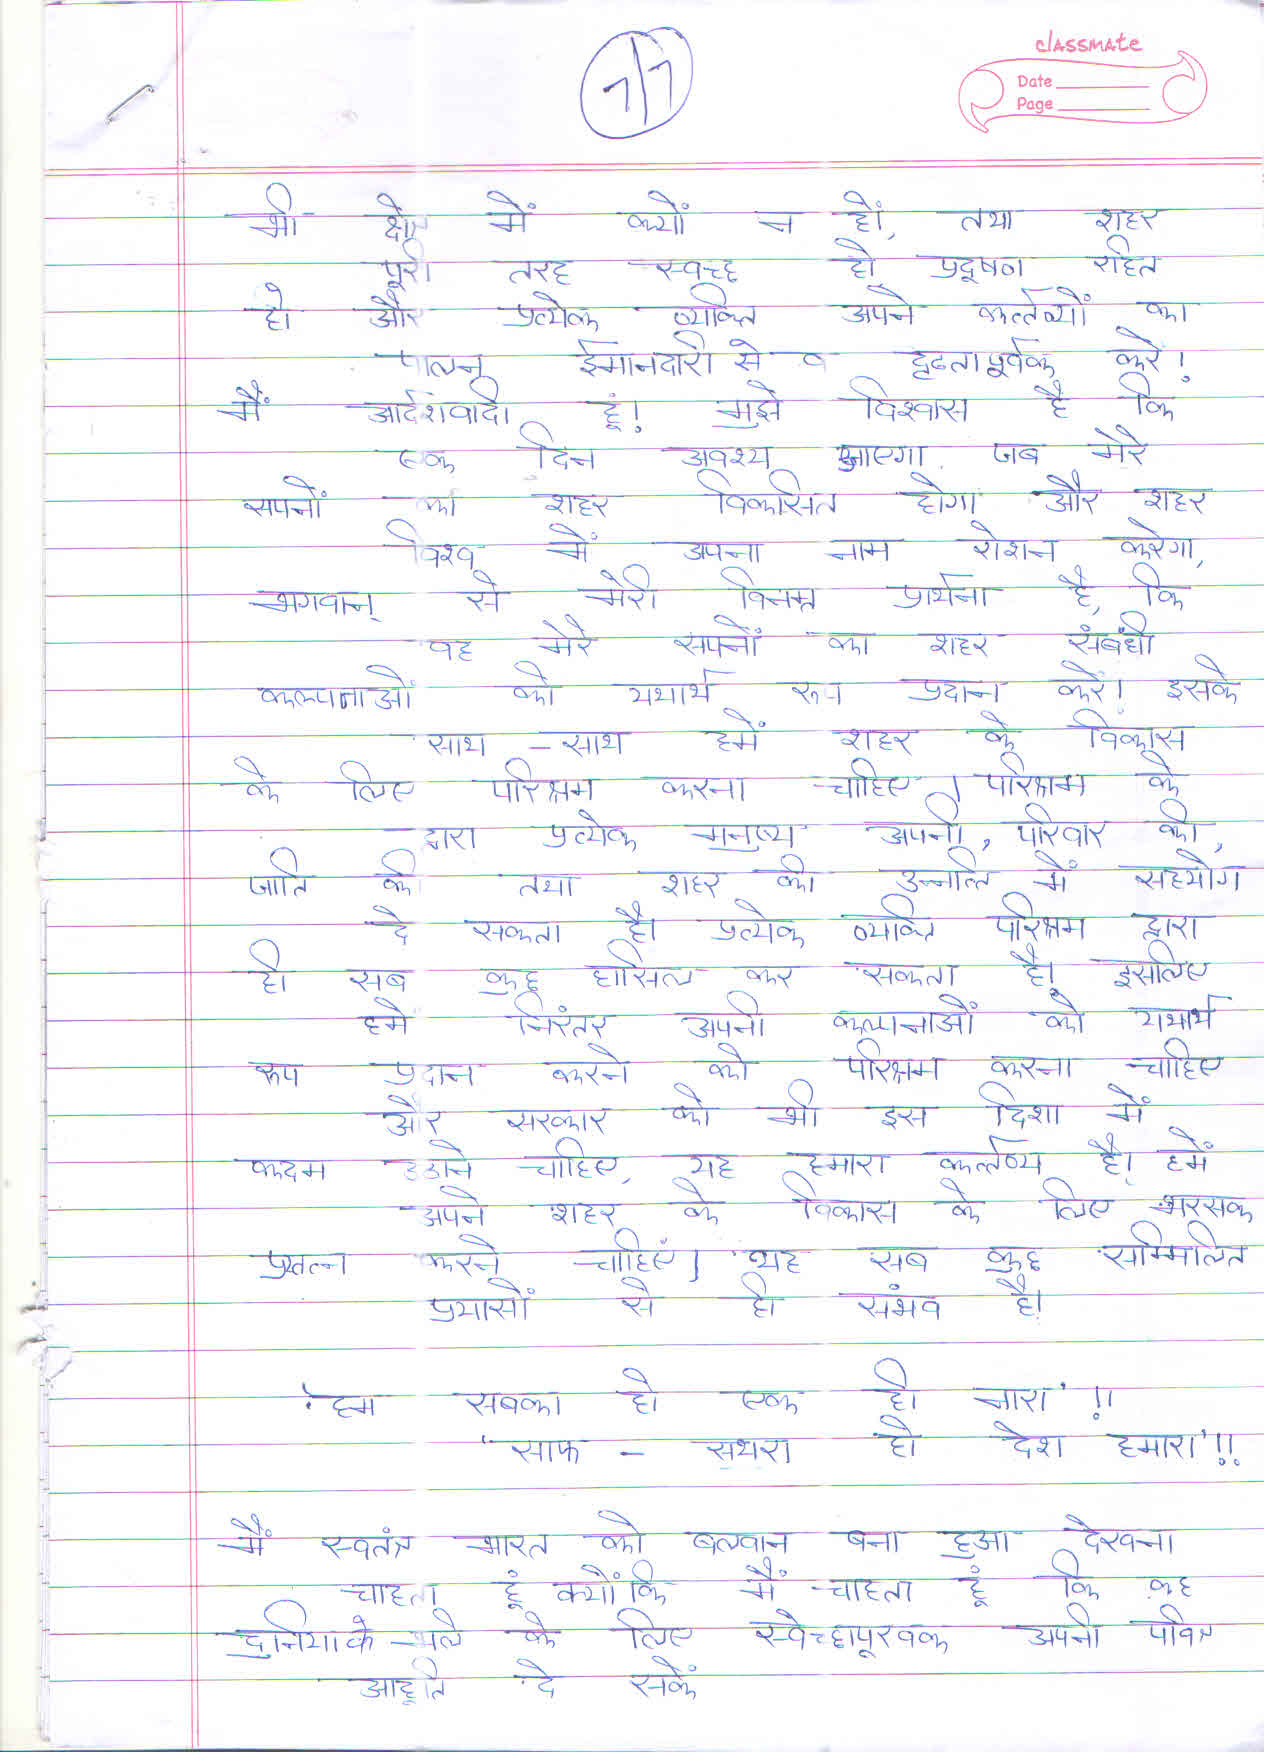 7/7
classmate
Date
Page
भी क्षेत्र में क्यों न हों, तथा शहर
पूरी तरह स्वच्छ हो प्रदूषण रहित
हो और प्रत्येक व्यक्ति अपने कर्त्तव्यों का
पालन ईमानदारी से व दृढतापूर्वक करे!
मैं आर्दशवादी हूं! मुझे विश्वास है कि
एक दिन अवश्य आएगा जब मेरे
सपनों का शहर विकसित होगा और शहर
विश्व में अपना नाम रोशन करेगा,
भगवान् से मेरी विनम्र प्रार्थना है, कि
वह मेरे सपनों का शहर संबंधी
कल्पनाओं को यथार्थ रूप प्रदान करें! इसके
साथ - साथ हमें शहर के विकास
के लिए परिश्रम करना चाहिए। परिश्रम के
द्वारा प्रत्येक मनुष्य अपनी, परिवार की,
जाति की तथा शहर की उन्नति में सहयोग
दे सकता है। प्रत्येक व्यक्ति परिश्रम द्वारा
ही सब कुछ हासिल कर सकता है। इसलिए
हमें निरंतर अपनी कल्पनाओं को यथार्थ
रूप प्रदान करने को परिश्रम करना चाहिए
और सरकार को भी इस दिशा में
कदम उठाने चाहिए, यह हमारा कर्त्तव्य है। हमें
अपने शहर के विकास के लिए भरसक
प्रयत्न करने चाहिएं। यह सब कुछ सम्मिलित
प्रयासों से ही संभव है।
'हम सबका हो एक ही नारा'!!
'साफ - सथरा हो देश हमारा'!!
मैं स्वतंत्र भारत को बलवान बना हुआ देखना
चाहता हूं क्योंकि मैं चाहता हूं कि वह
दुनिया के भले के लिए स्वेच्छापूरवक अपनी पवित्र
आहूति दे सकें